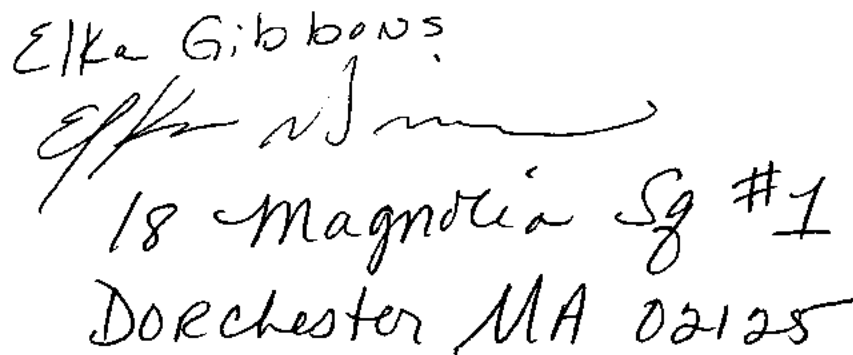 Elka Gibbons
Elka
18 Magnolia Sq #1
Dorchester MA 02125